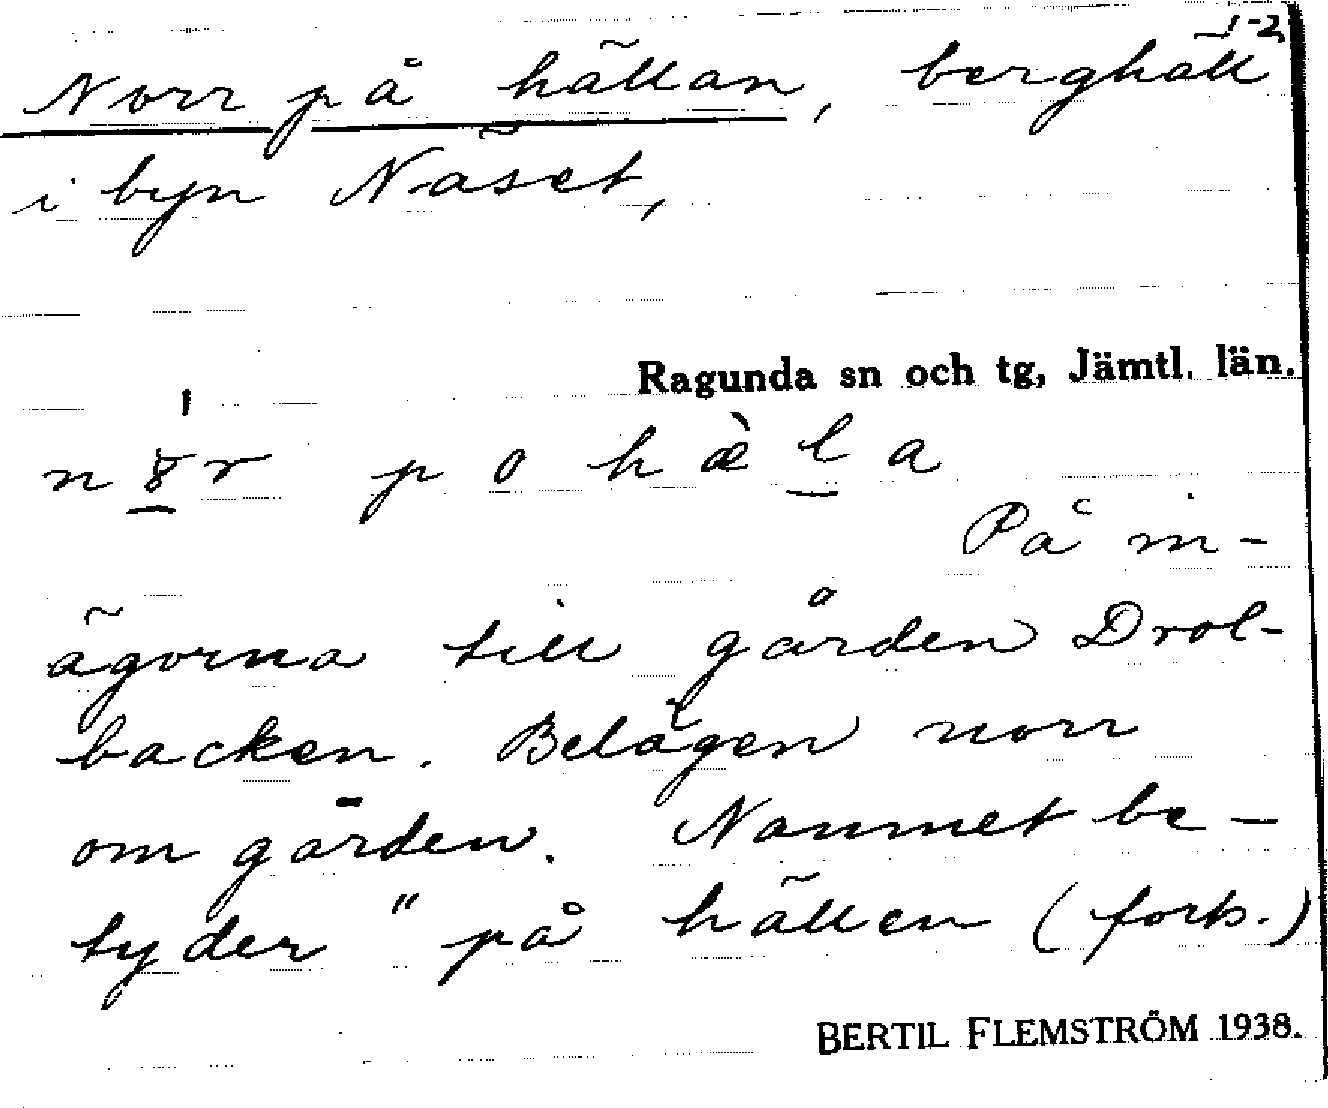 1-2
Norr på hällan, berghäll
i byn Näset,
Ragunda sn och tg, Jämtl. län.
po hæ̀la
På in-
ägorna till gården Drol-
backen. Belägen norr
om gården. Namnet be-
tyder "på hällen (forts.)
BERTIL FLEMSTRÖM 1938.